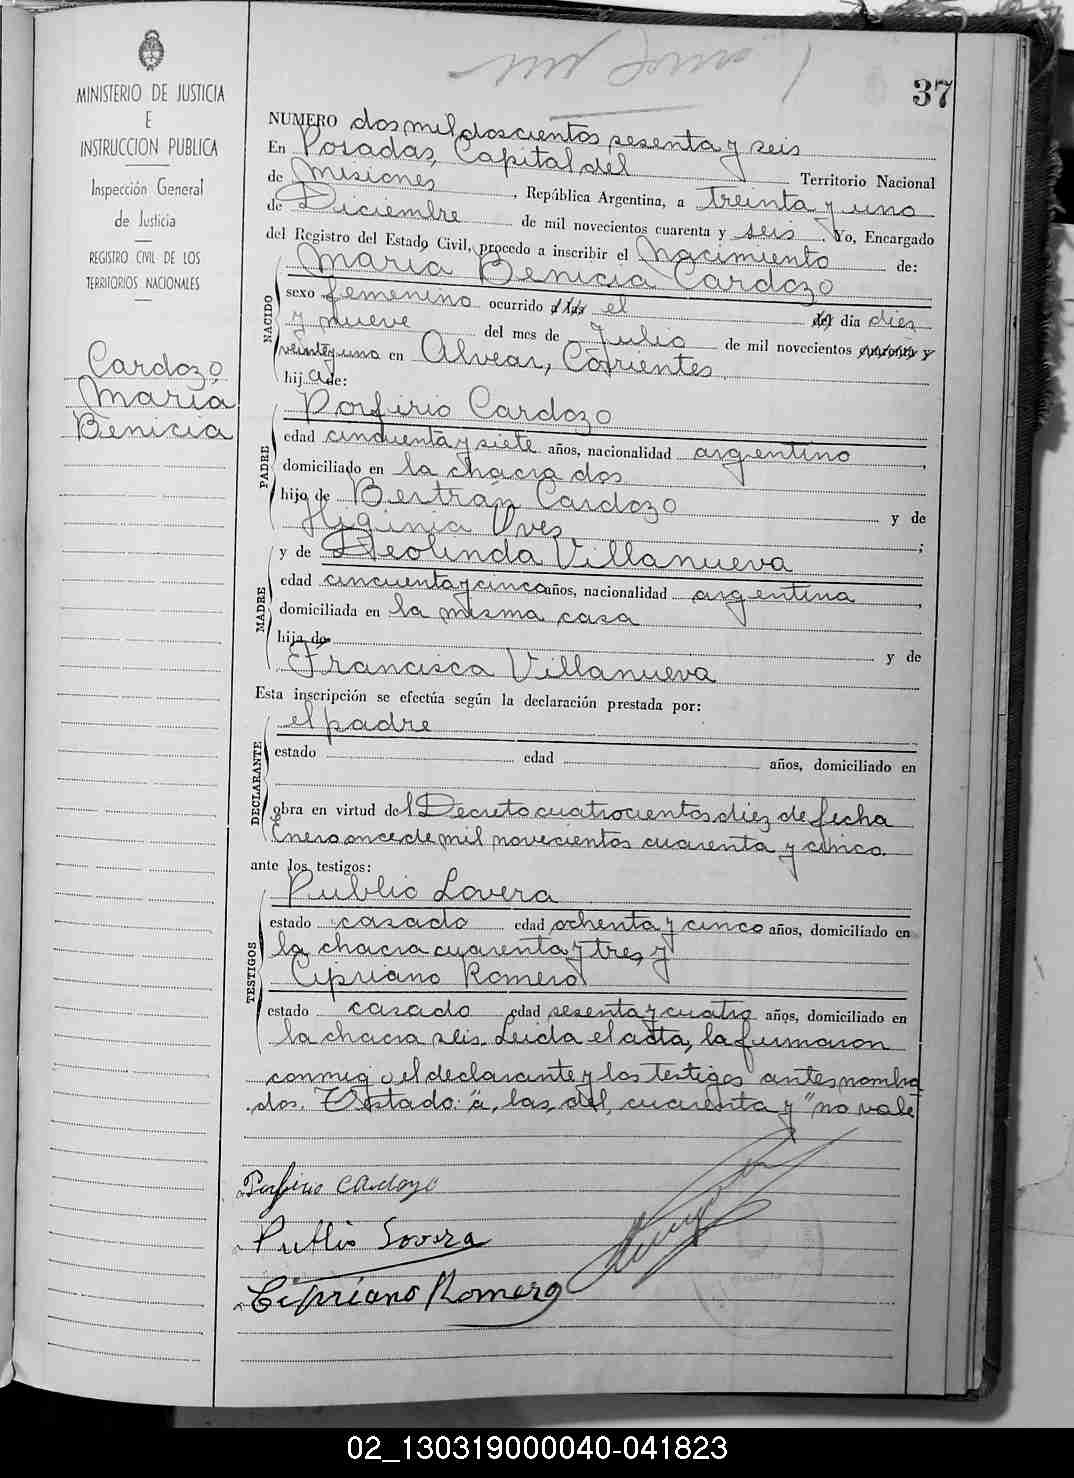 37
MINISTERIO DE JUSTICIA
E
INSTRUCCION PUBLICA
Inspección General
de Justicia
REGISTRO CIVIL DE LOS
TERRITORIOS NACIONALES
Cardozo
María
Benicia
NUMERO dos mil doscientos sesenta y seis
En Posadas, Capital del Territorio Nacional
de Misiones, República Argentina, a treinta y uno
de Diciembre de mil novecientos cuarenta y seis. Yo, Encargado
del Registro del Estado Civil, procedo a inscribir el Nacimiento de:
NACIDO
María Benicia Cardozo
sexo femenino ocurrido a las el del dia diez
y nueve del mes de Julio de mil novecientos cuarenta y
veinte y uno en Alvear, Corrientes
hija de:
PADRE
Porfirio Cardozo
edad cincuenta y siete años, nacionalidad argentino,
domiciliado en la chacra dos
hijo de Bertran Cardozo y de
Higinia Oves;
MADRE
y de Deolinda Villanueva
edad cincuenta y cinco años, nacionalidad argentina,
domiciliada en la misma casa
hija de y de
Francisca Villanueva
Esta inscripción se efectúa según la declaración prestada por:
DECLARANTE
el padre
estado edad años, domiciliado en
obra en virtud del Decreto cuatrocientos diez de fecha
Enero once de mil novecientos cuarenta y cinco.
ante los testigos:
TESTIGOS
Publio Lovera
estado casado edad ochenta y cinco años, domiciliado en
la chacra cuarenta y tres, y
Cipriano Romero
estado casado edad sesenta y cuatro años, domiciliado en
la chacra seis. Leida el acta, la firmaron
conmigo el declarante y los testigos antes nombra
dos. Testado: "a, las, del, cuarenta y" no vale
Porfirio Cardozo
Publio Lovera
Cipriano Romero
02_130319000040-041823